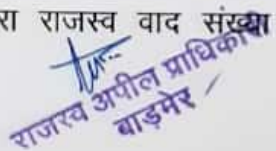 रा राजस्व वाद संख्या
राजस्व अपील प्राधिकारी
बाड़मेर